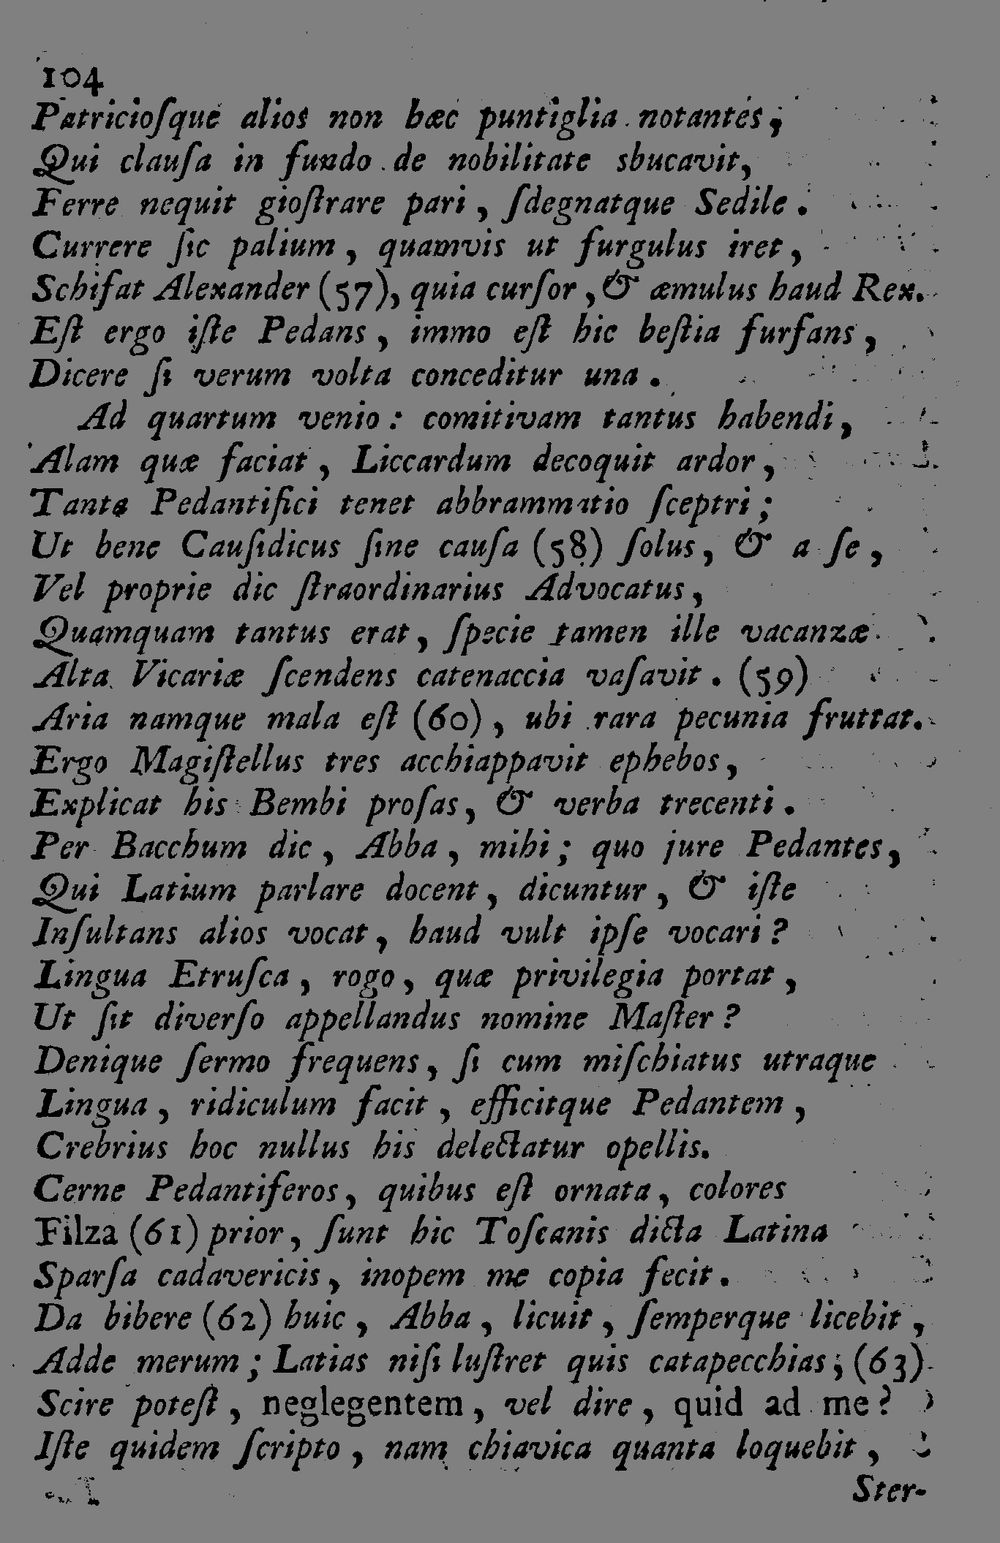 104
Patricioſque alios non hæc puntiglia notantes,
Qui clauſa in fundo de nobilitate sbucavit,
Ferre nequit gioſtrare pari, ſdegnatque Sedile.
Currere ſic palium, quamvis ut furgulus iret,
Schifat Alexander (57), quia curſor, & æmulus haud Rex.
Eſt ergo iſte Pedans, immo eſt hic beſtia furfans,
Dicere ſi verum volta conceditur una.
Ad quartum venio: comitivam tantus habendi,
Alam quæ faciat, Liccardum decoquit ardor,
Tanta Pedantifici tenet abbrammatio ſceptri;
Ut bene Cauſidicus ſine cauſa (58) ſolus, & a ſe,
Vel proprie dic ſtraordinarius Advocatus,
Quamquam tantus erat, ſpecie tamen ille vacanzæ
Alta Vicariæ ſcendens catenaccia vaſavit. (59)
Aria namque mala eſt (60), ubi rara pecunia fruttat.
Ergo Magiſtellus tres acchiappavit ephebos,
Explicat his Bembi proſas, & verba trecenti.
Per Bacchum dic, Abba, mihi; quo jure Pedantes,
Qui Latium parlare docent, dicuntur, & iſte
Inſultans alios vocat, haud vult ipſe vocari?
Lingua Etruſca, rogo, quæ privilegia portat,
Ut ſit diverſo appellandus nomine Maſter?
Denique ſermo frequens, ſi cum miſchiatus utraque
Lingua, ridiculum facit, efficitque Pedantem,
Crebrius hoc nullus his delectatur opellis.
Cerne Pedantiferos, quibus eſt ornata, colores
Filza (61) prior, ſunt hic Toſcanis dicta Latina
Sparſa cadavericis, inopem me copia fecit.
Da bibere (62) huic, Abba, licuit, ſemperque licebit,
Adde merum; Latias niſi luſtret quis catapecchias; (63)
Scire poteſt, neglegentem, vel dire, quid ad me?
Iſte quidem ſcripto, nam chiavica quanta loquebit,
Ster-